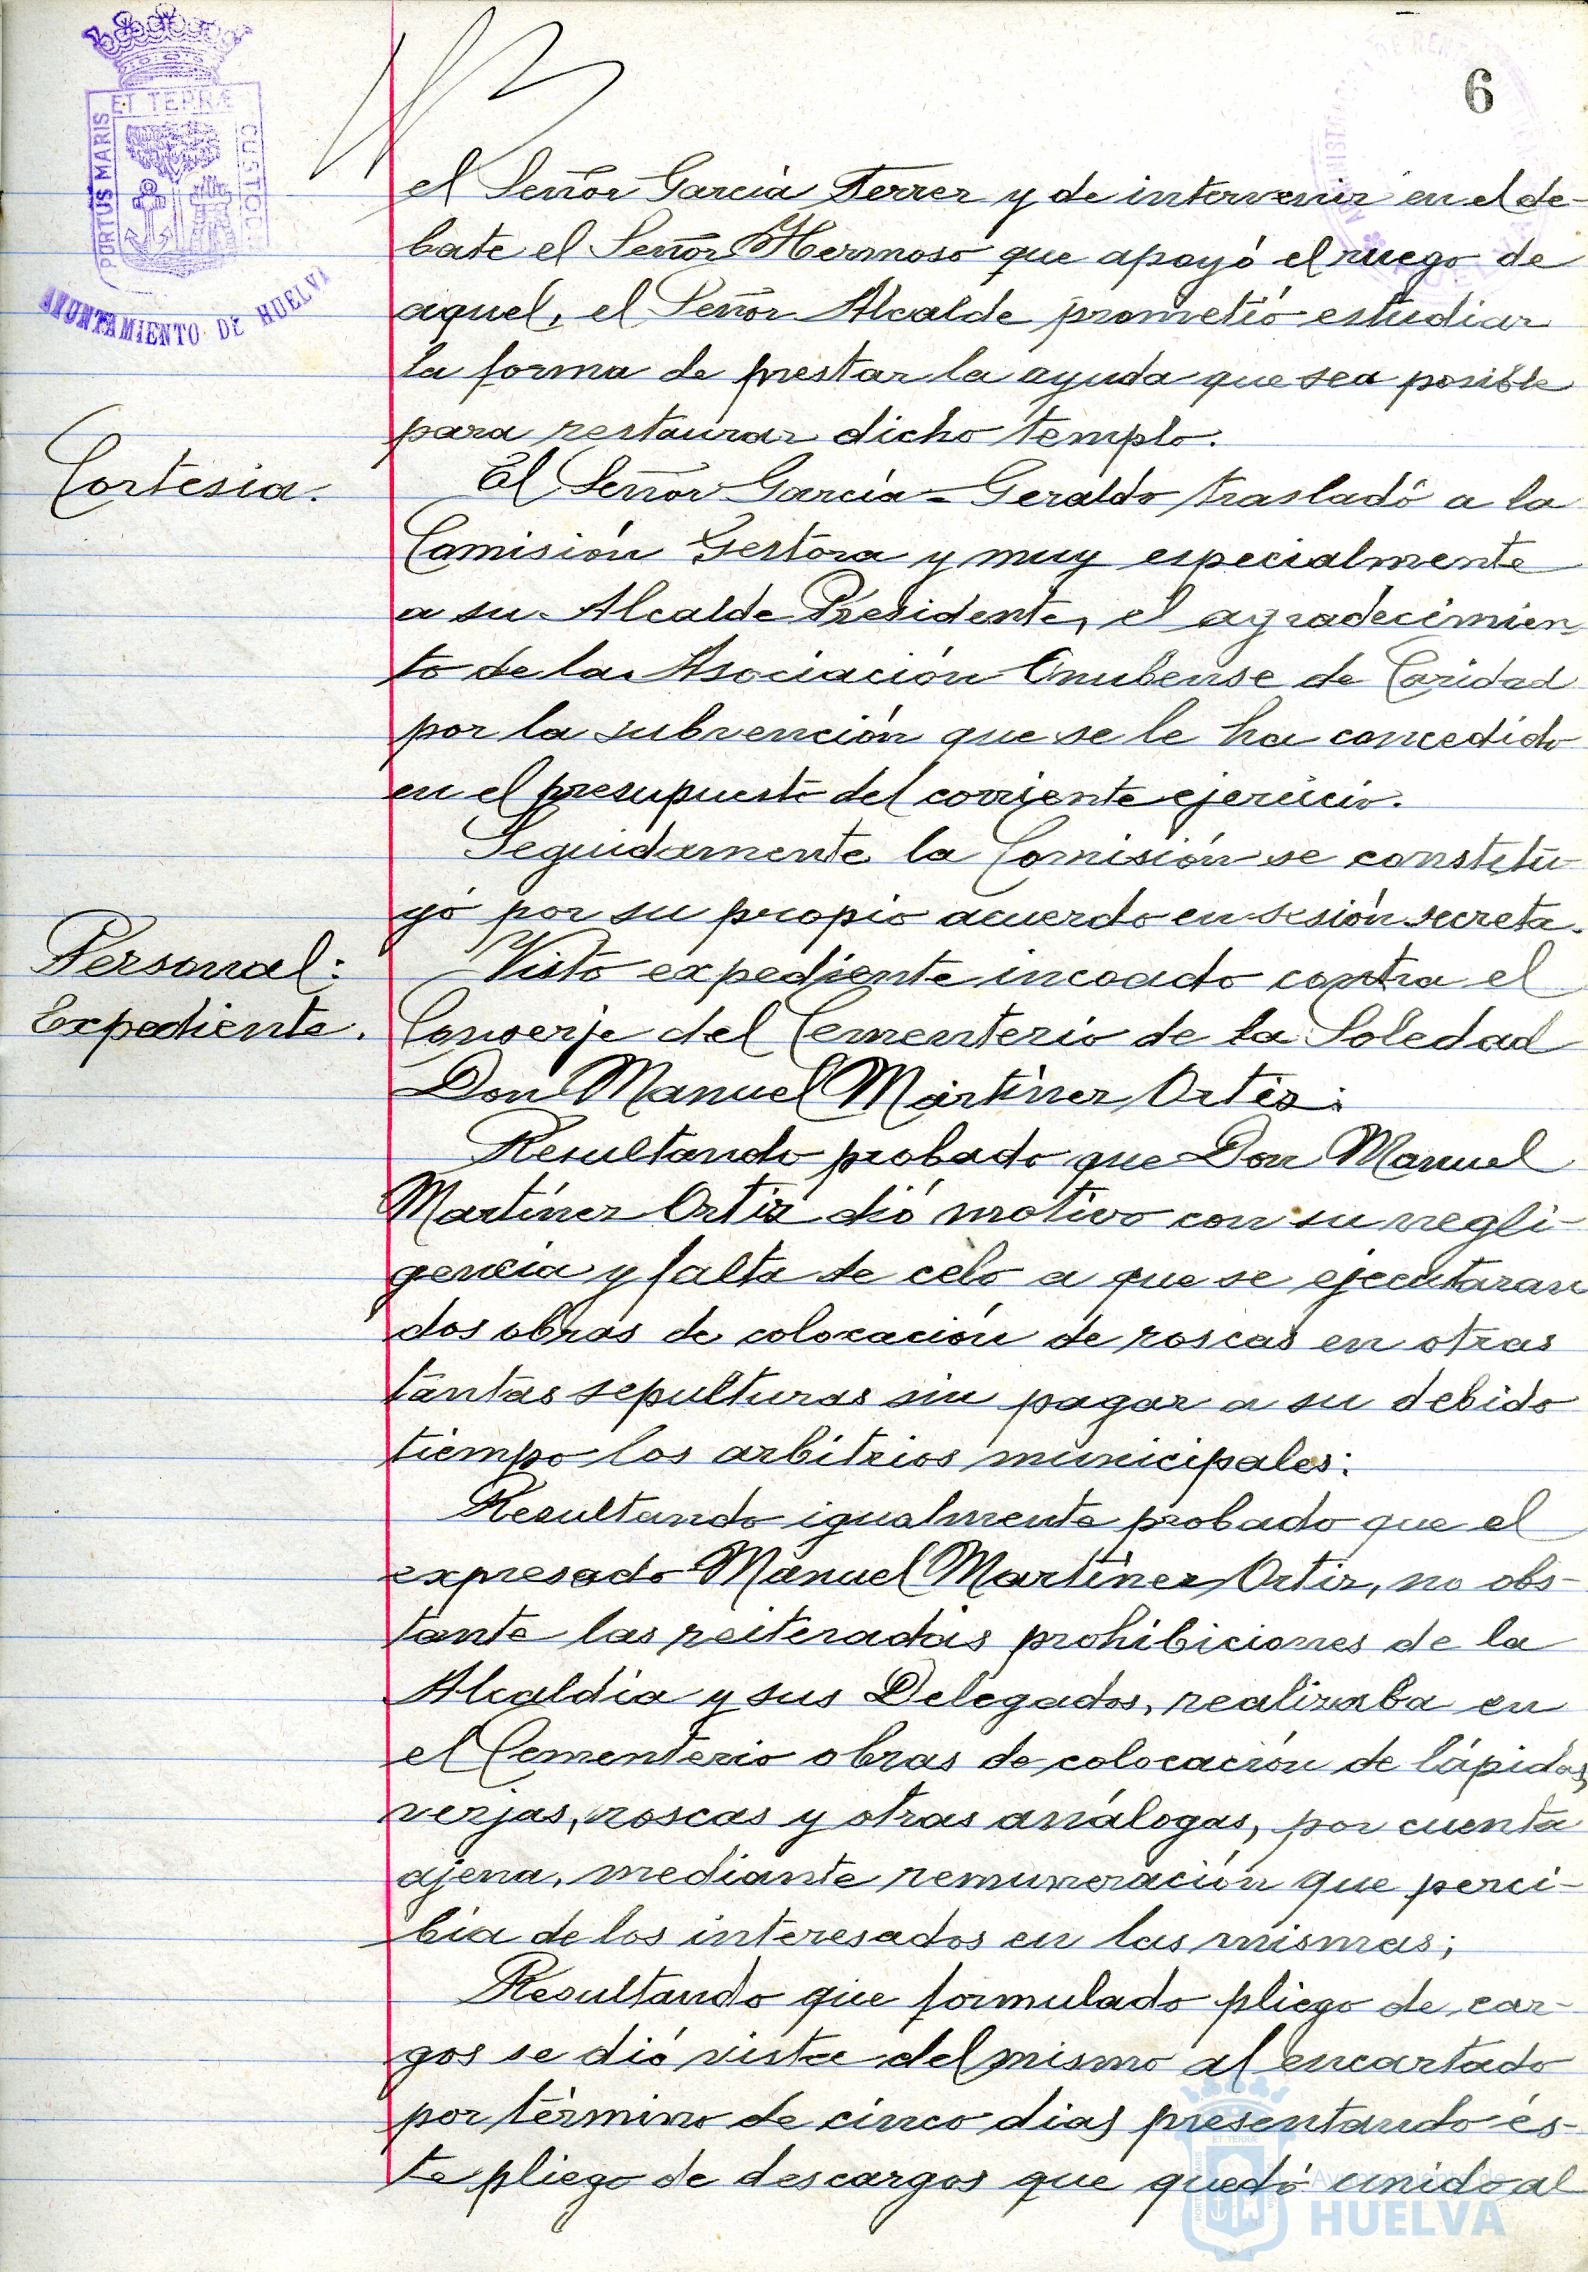 6
PORTUS MARIS
ET TERRÆ
CUSTODIA
AYUNTAMIENTO DE HUELVA
el Señor García Ferrer y de intervenir en el de-
bate el Señor Hermoso que apoyó el ruego de
aquel, el Señor Alcalde prometió estudiar
la forma de prestar la ayuda que sea posible
para restaurar dicho templo.
Cortesia.
El Señor García-Geraldo trasladó a la
Comisión Gestora y muy especialmente
a su Alcalde Presidente, el agradecimien
to de la Asociación Onubense de Caridad
por la subvención que se le ha concedido
en el presupuesto del corriente ejercicio.
Seguidamente la Comisión se constitu-
yó por su propio acuerdo en sesión secreta.
Personal:
Expediente.
Visto expediente incoado contra el
Conserje del Cementerio de la Soledad
Don Manuel Martínez Ortiz:
Resultando probado que Don Manuel
Martínez Ortiz dió motivo con su negli-
gencia y falta de celo a que se ejecutaran
dos obras de colocación de roscas en otras
tantas sepulturas sin pagar a su debido
tiempo los arbitrios municipales:
Resultando igualmente probado que el
expresado Manuel Martínez Ortiz, no obs-
tante las reiteradas prohibiciones de la
Alcaldia y sus Delegados, realizaba en
el Cementerio obras de colocación de lápidas,
verjas, roscas y otras análogas, por cuenta
ajena, mediante remuneración que perci-
bia de los interesados en las mismas;
Resultando que formulado pliego de car-
gos se dió vista del mismo al encartado
por término de cinco dias presentando és-
te pliego de descargos que quedó unido al
Ayuntamiento de
HUELVA